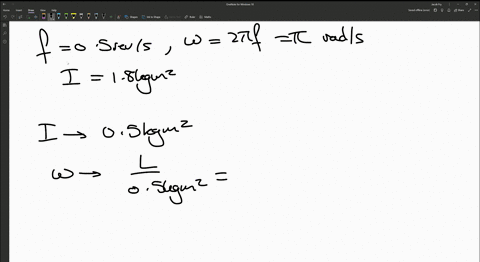 f = 0.5rev/s , ω = 2πf = π rad/s
I = 1.8kgm²
I → 0.5kgm²
ω → L / 0.5kgm² =